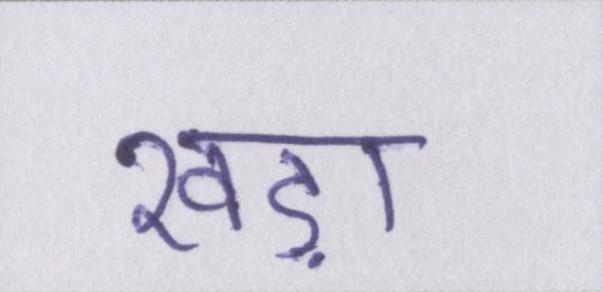 खड़ा